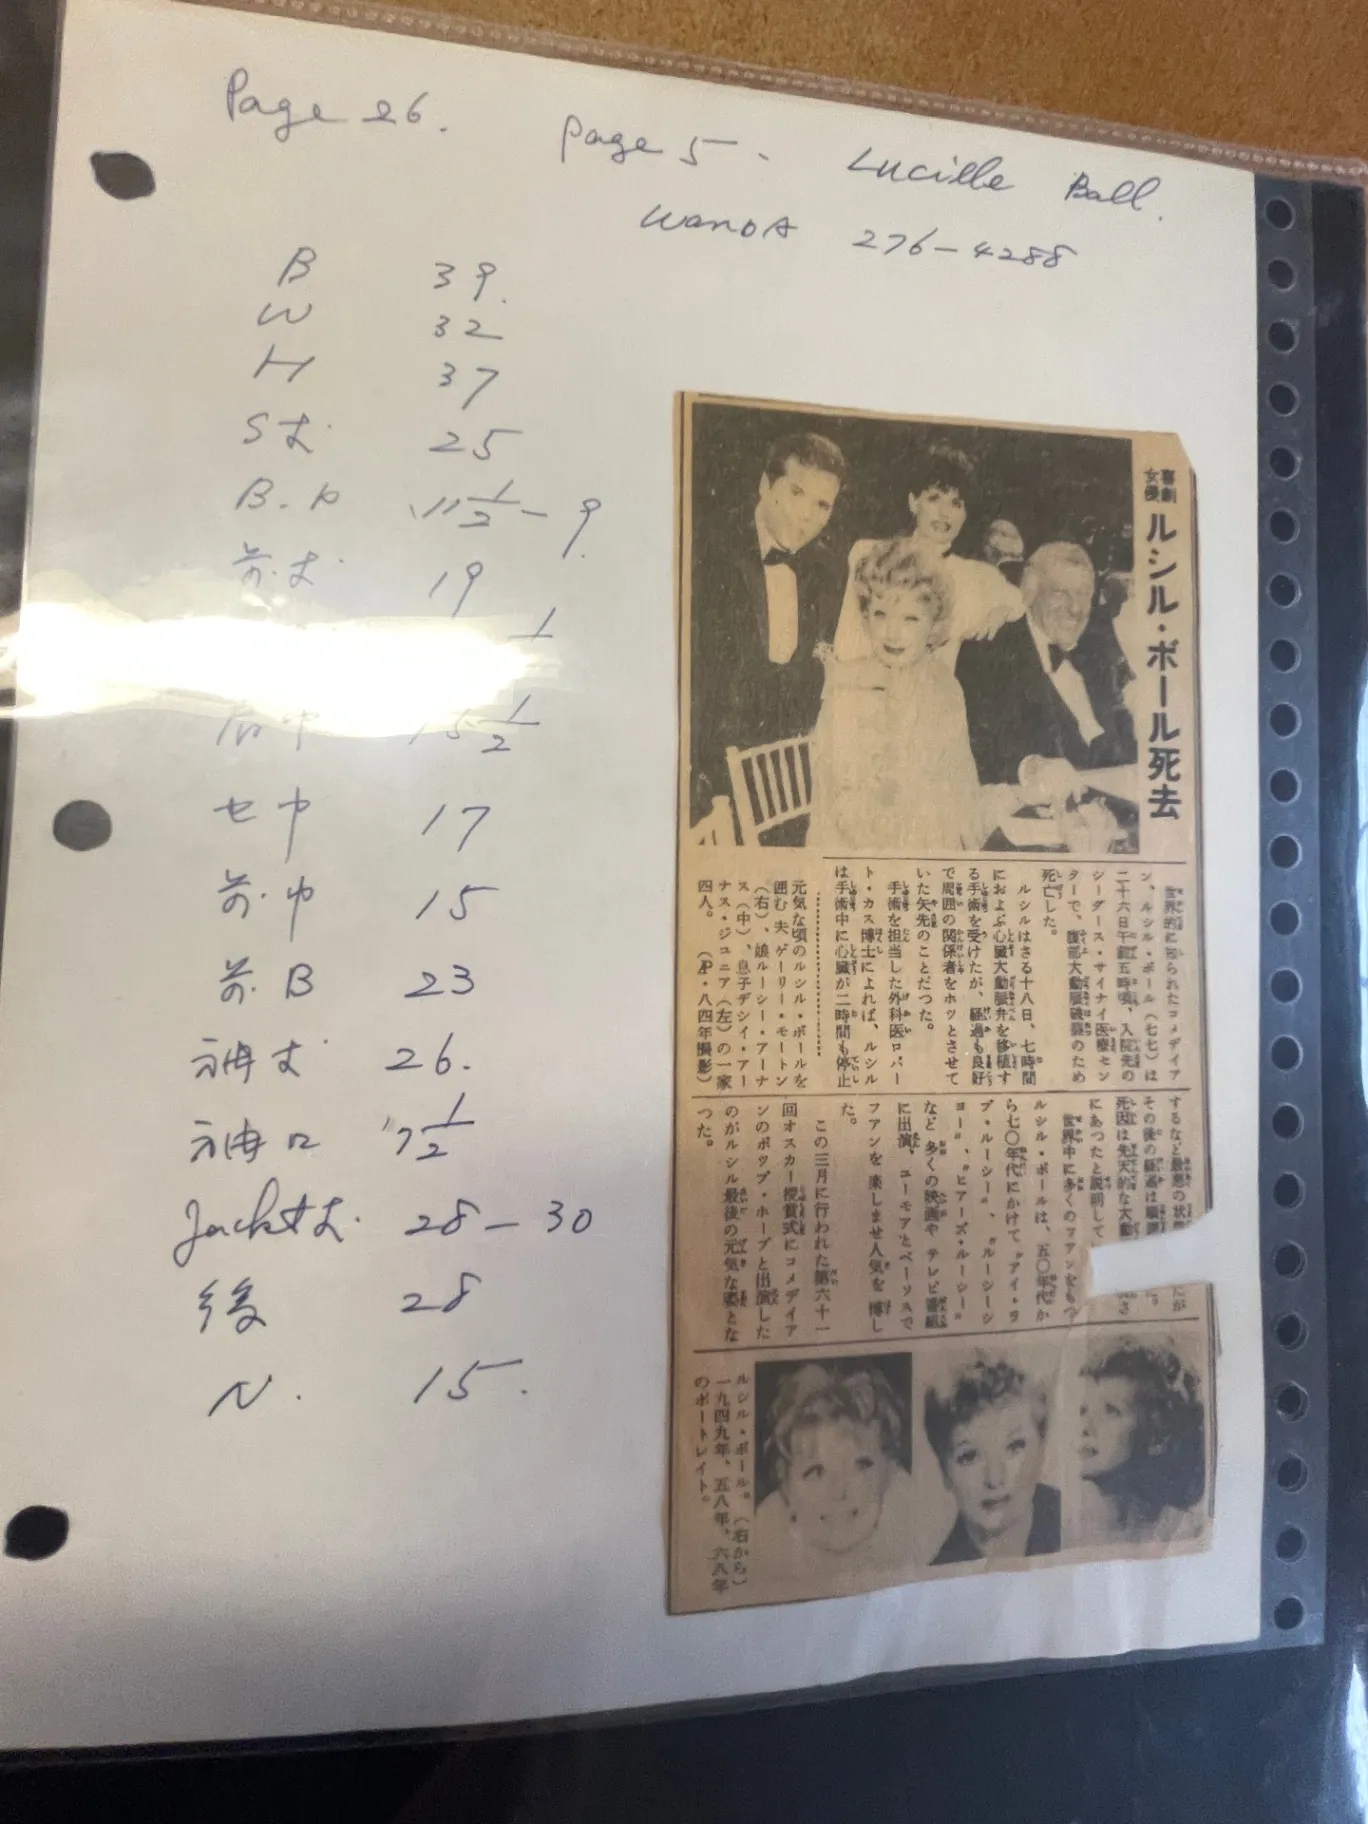 Page 26.
Page 5. Lucille Ball.
WANDA 276-4288
B 39.
W 32
H 37
S丈 25
B.P 11 1/2 - 9.
前.丈 19
1
肩巾 15 1/2
セ巾 17
前.巾 15
前.B 23
袖丈 26.
袖口 7 1/2
Jacket丈. 28-30
後 28
N. 15.
喜劇女優 ルシル・ボール死去
世界的に知られたコメディアン、ルシル・ボール(七七)は
二十六日午前五時頃、入院先の
シーダース・サイナイ医療センターで、腹部大動脈破裂のため
死亡した。
ルシルはさる十八日、七時間
におよぶ心臓大動脈弁を移植す
る手術を受けたが、経過も良好
で周囲の関係者をホッとさせて
いた矢先のことだつた。
手術を担当した外科医ロバー
ト・カス博士によれば、ルシル
は手術中に心臓が二時間も停止
するなど最悪の状態
その後の経過は順調
死因は先天的な大動
にあつたと説明して
世界中に多くのファンをもつ
ルシル・ボールは、五〇年代か
ら七〇年代にかけて〝アイ・ラ
ブ・ルーシー〟、〝ルーシーシ
ョー〟、〝ヒアーズ・ルーシー〟
など 多くの映画や テレビ番組
に出演、ユーモアとペーソスで
ファンを 楽しませ人気を 博し
た。
この三月に行われた第六十一
回オスカー授賞式にコメディア
ンのボップ・ホープと出演した
のがルシル最後の元気な姿とな
つた。
元気な頃のルシル・ボールを
囲む 夫 ゲーリー・モートン
(右)、娘ルーシー・アーナ
ス(中)、息子デシィ・アー
ナス・ジュニア(左)の一家
四人。 (AP・八四年撮影)
ルシル・ボール。(右から)
一九四九年、五八年、六八年
のポートレイト。